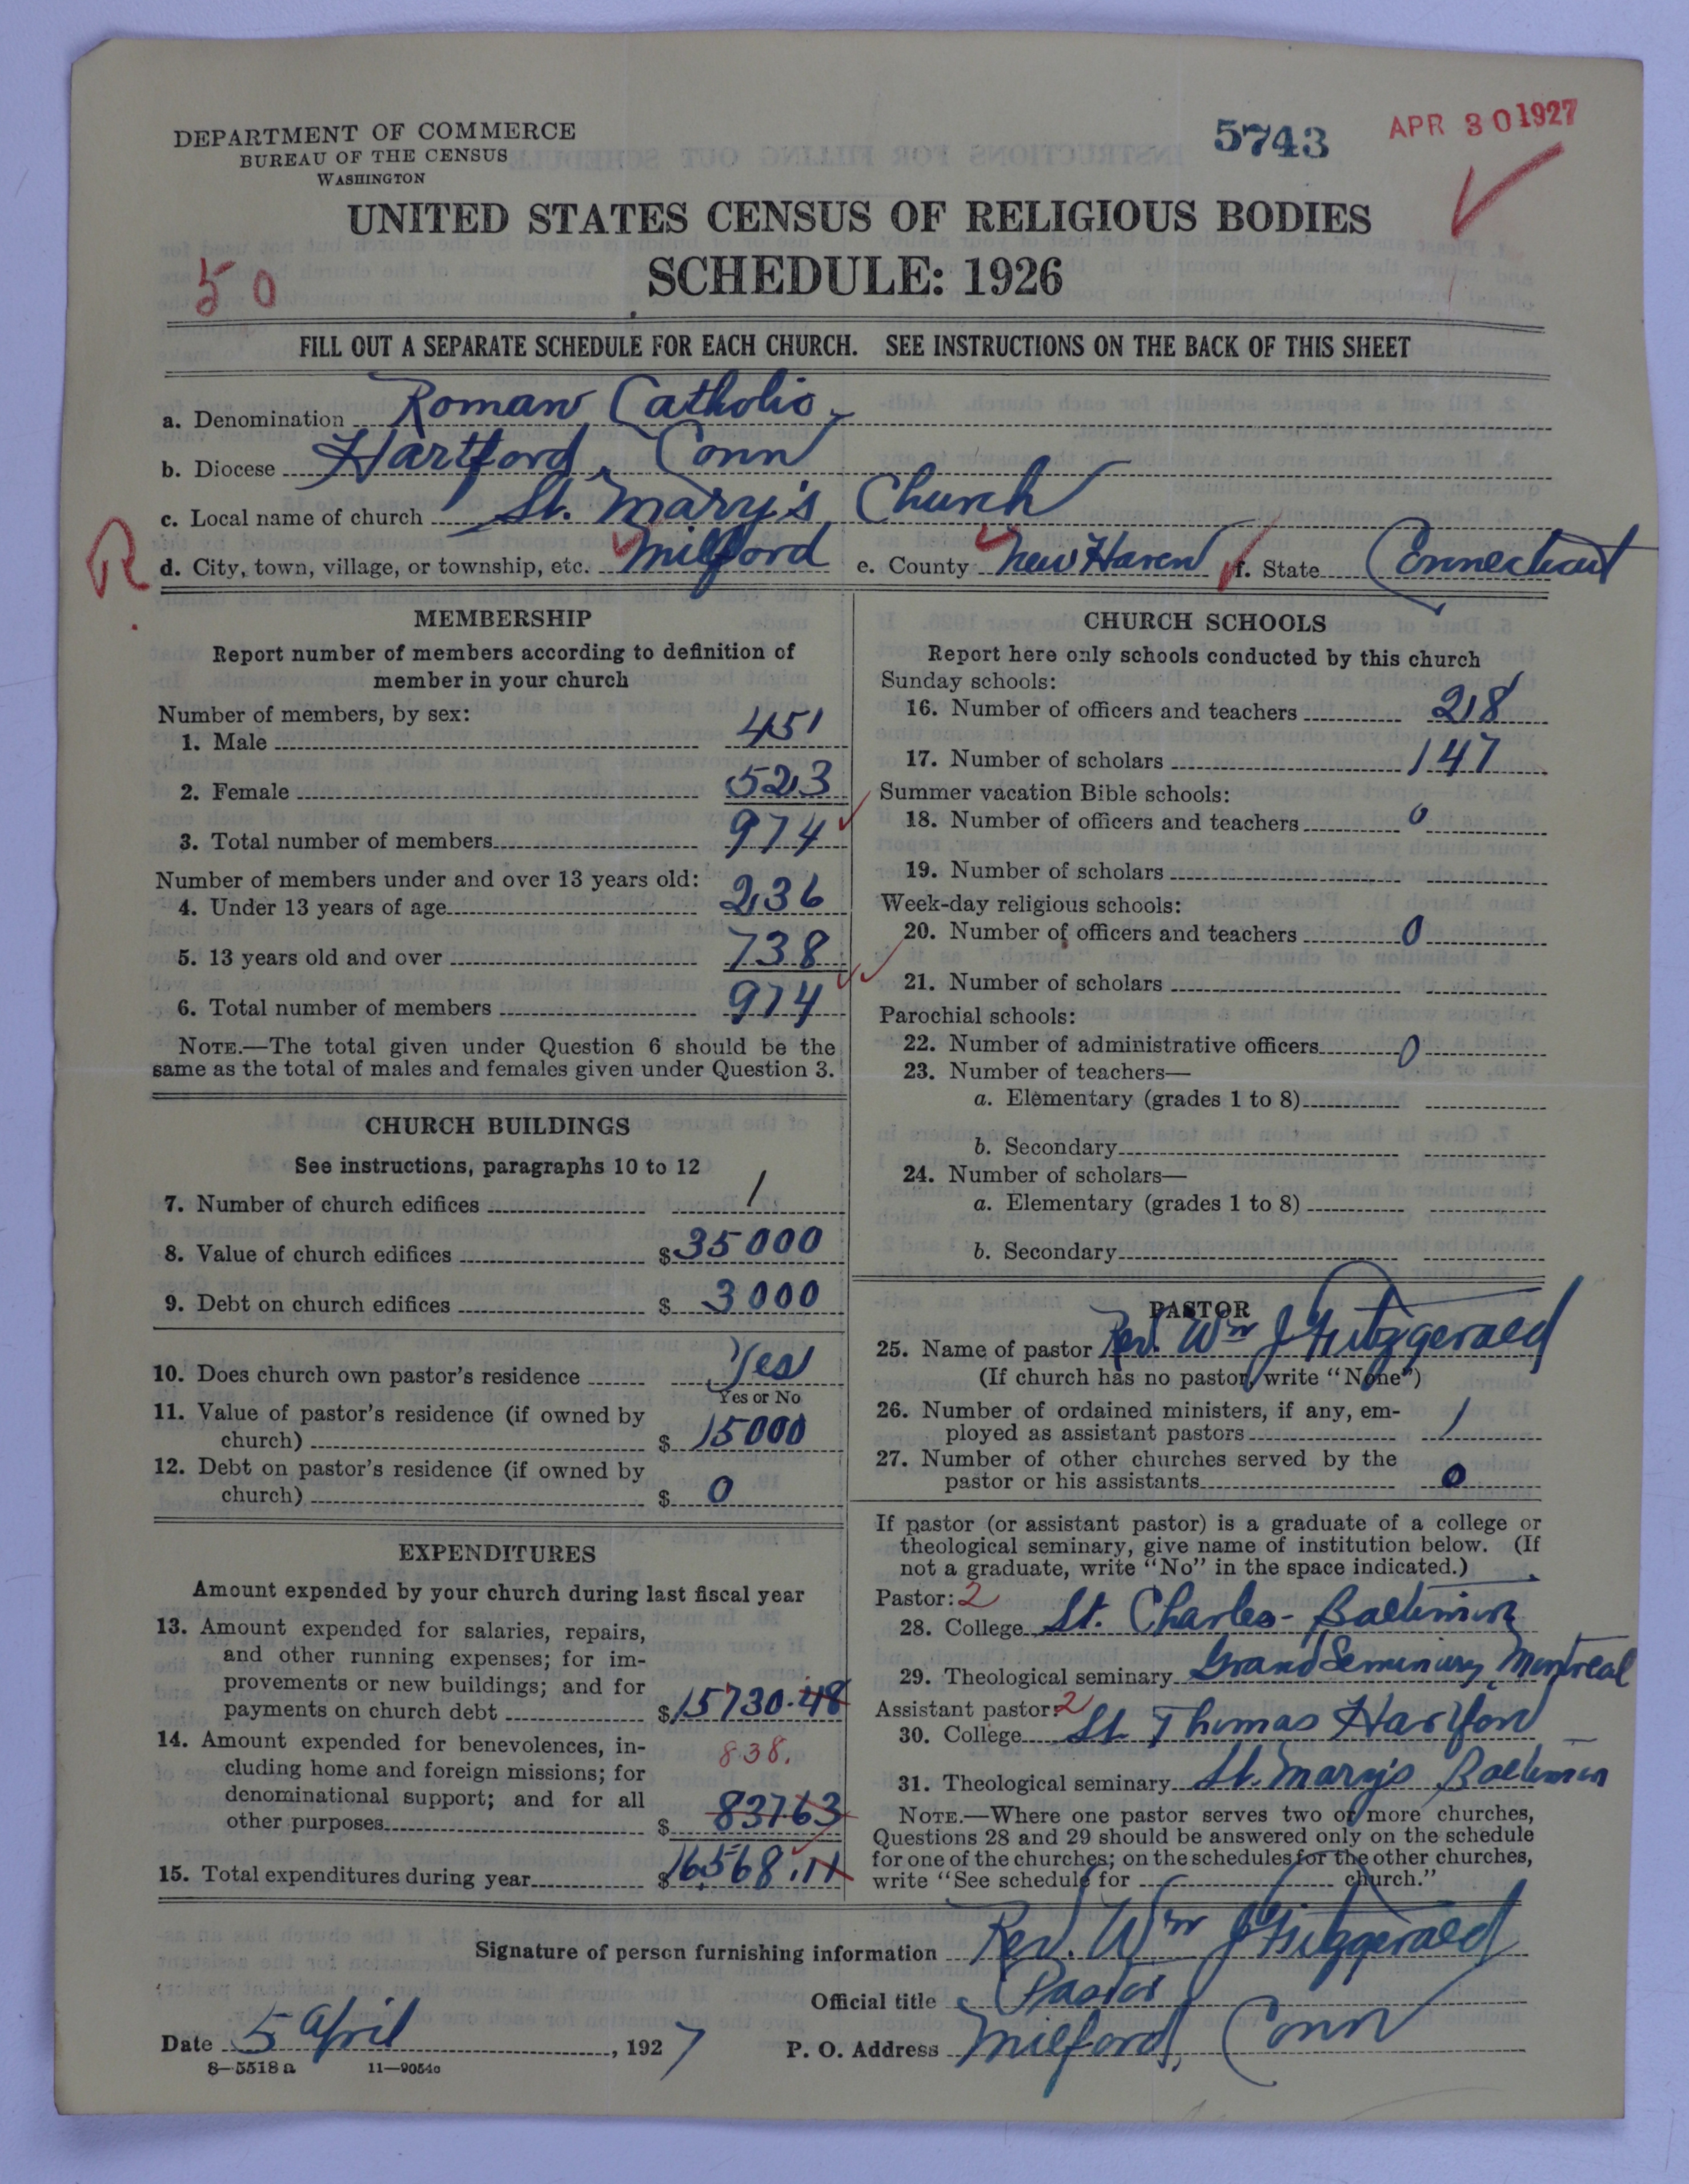 DEPARTMENT OF COMMERCE
BUREAU OF THE CENSUS
WASHINGTON
5743
APR 30 1927
UNITED STATES CENSUS OF RELIGIOUS BODIES
SCHEDULE: 1926
50
FILL OUT A SEPARATE SCHEDULE FOR EACH CHURCH. SEE INSTRUCTIONS ON THE BACK OF THIS SHEET
a. Denomination Roman Catholic
b. Diocese Hartford, Conn
c. Local name of church St. Mary's Church
R.
d. City, town, village, or township, etc. Milford e. County New Haven f. State Connecticut
MEMBERSHIP
Report number of members according to definition of
member in your church
Number of members, by sex:
1. Male 451
2. Female 523
3. Total number of members 974
Number of members under and over 13 years old:
4. Under 13 years of age 236
5. 13 years old and over 738
6. Total number of members 974
NOTE.—The total given under Question 6 should be the
same as the total of males and females given under Question 3.
CHURCH BUILDINGS
See instructions, paragraphs 10 to 12
7. Number of church edifices 1
8. Value of church edifices $35000
9. Debt on church edifices $3000
10. Does church own pastor's residence Yes
Yes or No
11. Value of pastor's residence (if owned by
church) $15000
12. Debt on pastor's residence (if owned by
church) $0
EXPENDITURES
Amount expended by your church during last fiscal year
13. Amount expended for salaries, repairs,
and other running expenses; for im-
provements or new buildings; and for
payments on church debt $15730.48
14. Amount expended for benevolences, in- 838.
cluding home and foreign missions; for
denominational support; and for all
other purposes $83763
15. Total expenditures during year $16568.11
CHURCH SCHOOLS
Report here only schools conducted by this church
Sunday schools:
16. Number of officers and teachers 218
17. Number of scholars 147
Summer vacation Bible schools:
18. Number of officers and teachers 0
19. Number of scholars
Week-day religious schools:
20. Number of officers and teachers 0
21. Number of scholars
Parochial schools:
22. Number of administrative officers 0
23. Number of teachers—
a. Elementary (grades 1 to 8)
b. Secondary
24. Number of scholars—
a. Elementary (grades 1 to 8)
b. Secondary
PASTOR
25. Name of pastor Rev. Wm J Fitzgerald
(If church has no pastor, write "None")
26. Number of ordained ministers, if any, em-
ployed as assistant pastors 1
27. Number of other churches served by the
pastor or his assistants 0
If pastor (or assistant pastor) is a graduate of a college or
theological seminary, give name of institution below. (If
not a graduate, write "No" in the space indicated.)
Pastor: 2
28. College St. Charles - Baltimore
29. Theological seminary Grand Seminary, Montreal
Assistant pastor: 2
30. College St Thomas Hartford
31. Theological seminary St. Mary's Baltimore
NOTE.—Where one pastor serves two or more churches,
Questions 28 and 29 should be answered only on the schedule
for one of the churches; on the schedules for the other churches,
write "See schedule for church."
Signature of person furnishing information Rev. Wm J Fitzgerald
Official title Pastor
Date 5 April, 1927 P. O. Address Milford, Conn
8—5518a 11—9054c